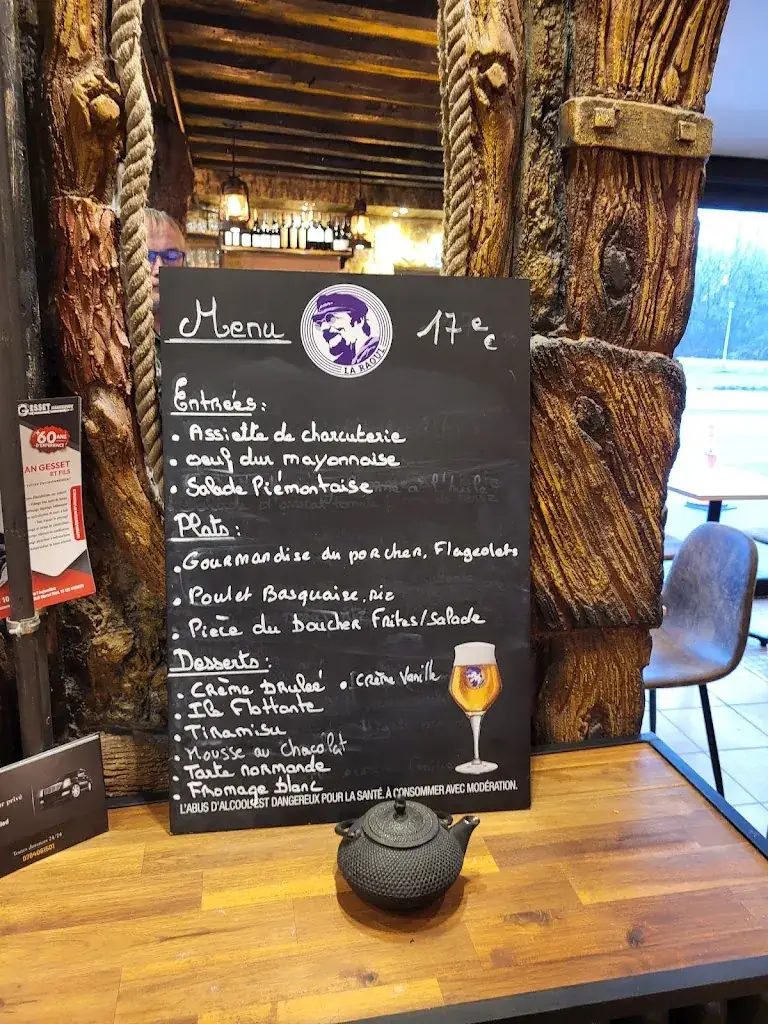 Menu
LA RAOUL
17 €
Entrées:
• Assiette de charcuterie
• oeuf dur mayonnaise
• Salade Piémontaise
Plats:
• Gourmandise du porcher, Flageolets
• Poulet Basquaise, riz
• Pièce du boucher Frites/Salade
Desserts:
• Crème brulée • Crème Vanille
• Ile Flottante
• Tiramisu
• Mousse au chocolat
• Tarte normande
• Fromage blanc
L'ABUS D'ALCOOL EST DANGEREUX POUR LA SANTÉ. À CONSOMMER AVEC MODÉRATION.
GESSET
+60 ANS
D'EXPÉRIENCE
AN GESSET
ET FILS
r privé
Toutes distances 24/24
0784061501